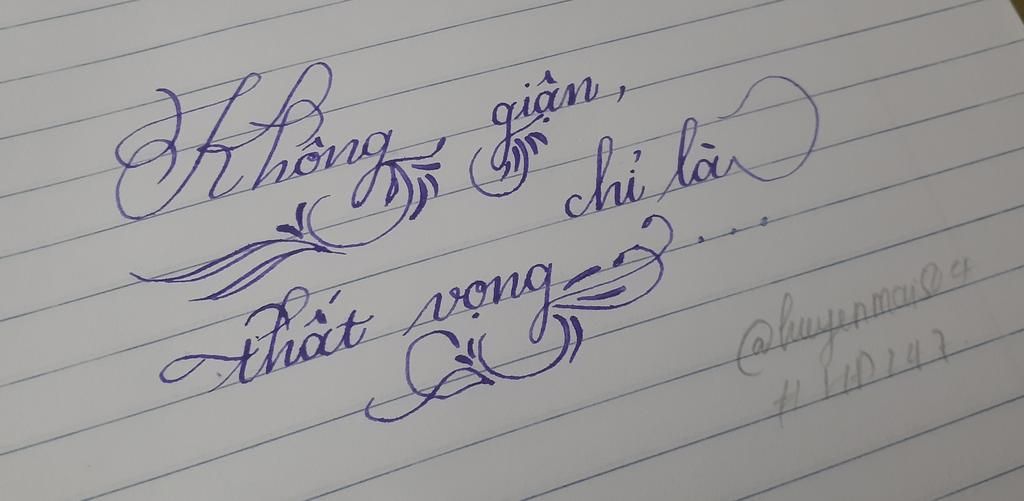 Không giận,
chỉ là
thất vọng...
@huyenmais04